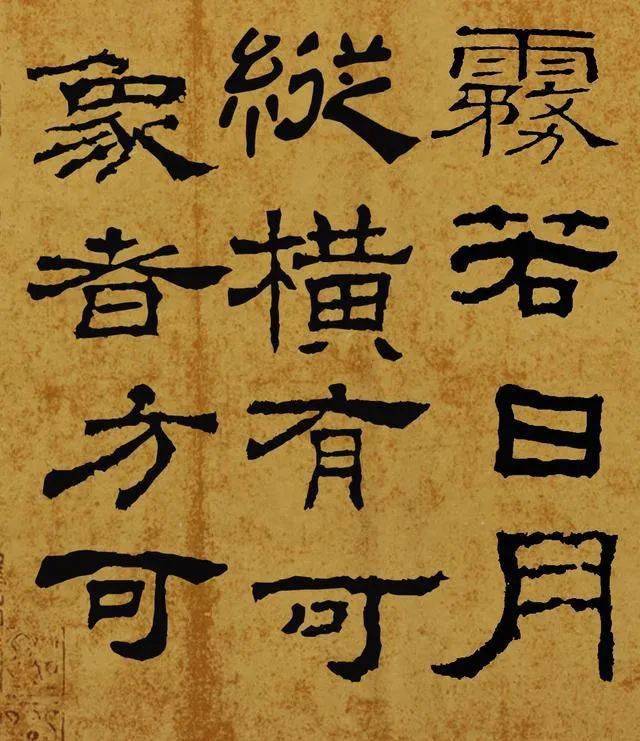 霧若日月
縱橫有可
象者方可